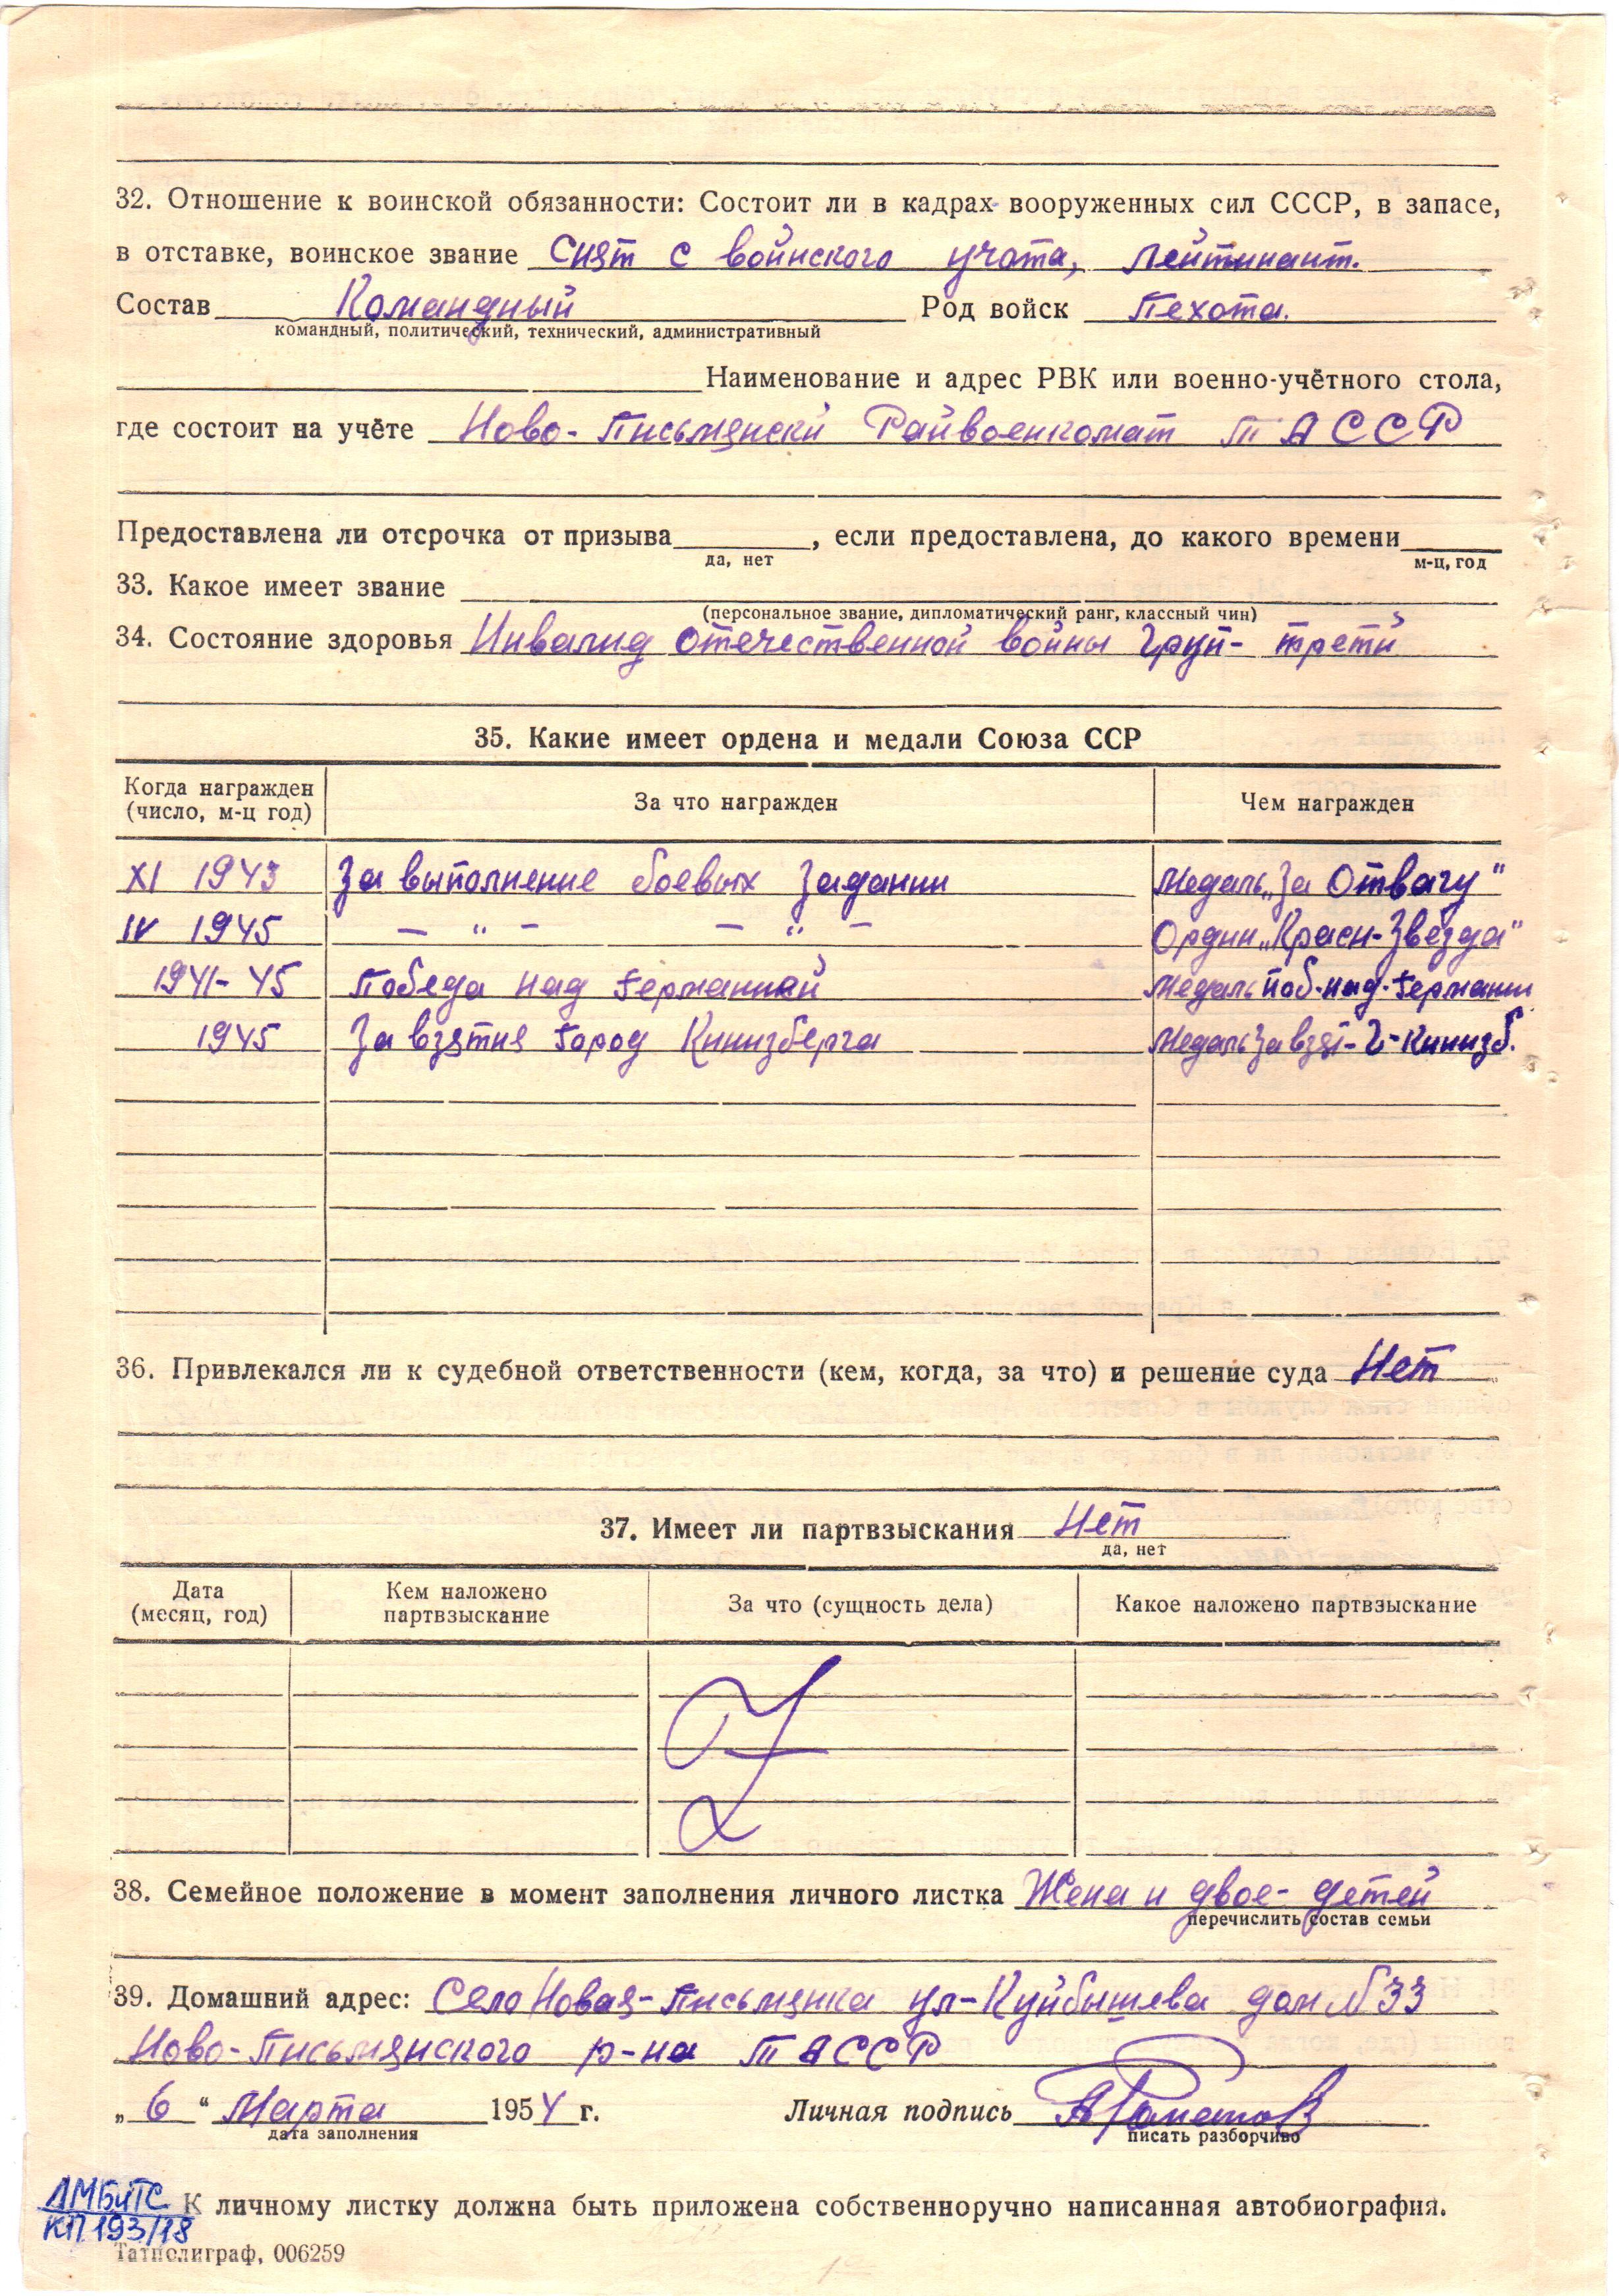 32. Отношение к воинской обязанности: Состоит ли в кадрах вооруженных сил СССР, в запасе,
в отставке, воинское звание Снят с воинского учота, лейтинант.
Состав Командный Род войск Пехота.
командный, политический, технический, административный
Наименование и адрес РВК или военно-учётного стола,
где состоит на учёте Ново-Письмянски Райвоенкомат ТАССР
Предоставлена ли отсрочка от призыва , если предоставлена, до какого времени
да, нет м-ц, год
33. Какое имеет звание
(персональное звание, дипломатический ранг, классный чин)
34. Состояние здоровья Инвалид отечественной войны груп- трети
35. Какие имеет ордена и медали Союза ССР
Когда награжден За что награжден Чем награжден
(число, м-ц год)
XI 1943 За выполнение боевых задании Медаль „За Отвагу"
IV 1945 — " — — " — Ордин „Красн-Звезда"
1941-45 Победа над Германией Медаль поб-над-Германии
1945 За взятия город Кинизберга Медаль за взят-г-Кинизб.
36. Привлекался ли к судебной ответственности (кем, когда, за что) и решение суда Нет
37. Имеет ли партвзыскания Нет
да, нет
Дата Кем наложено За что (сущность дела) Какое наложено партвзыскание
(месяц, год) партвзыскание
38. Семейное положение в момент заполнения личного листка Жена и двое-детей
перечислить состав семьи
39. Домашний адрес: Село Новая-Письмянка ул-Куйбышева дом №33
Ново-Письмянского р-на ТАССР
„ 6 " Марта 1954 г. Личная подпись
дата заполнения писать разборчиво
ЛМБиТС К личному листку должна быть приложена собственноручно написанная автобиография.
КП 193/18
Татполиграф, 006259